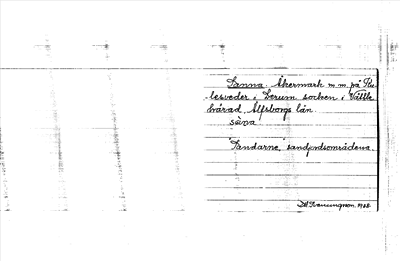 Sanna. Åkermark m.m. på Ru-
lesveder i Lerum socken i Vättle
härad Älfsborgs län.
sāna
'Sandarne', sandjordsområdena.
1928.